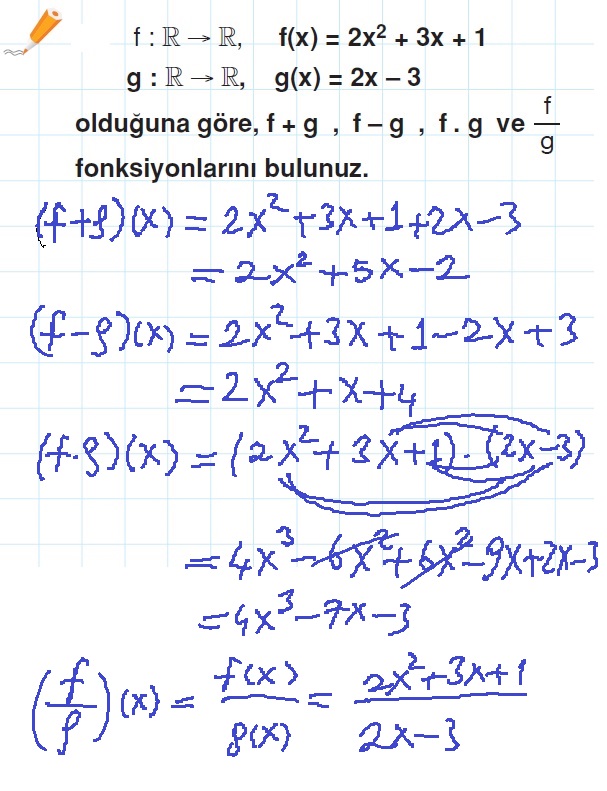 f : ℝ → ℝ, f(x) = 2x² + 3x + 1
g : ℝ → ℝ, g(x) = 2x – 3
olduğuna göre, f + g , f – g , f . g ve f/g
fonksiyonlarını bulunuz.
(f+g)(x) = 2x²+3x+1+2x-3
= 2x²+5x-2
(f-g)(x) = 2x²+3x+1-2x+3
= 2x²+x+4
(f.g)(x) = (2x²+3x+1).(2x-3)
= 4x³-6x²+6x²-9x+2x-3
= 4x³-7x-3
(f/g)(x) = f(x)/g(x) = (2x²+3x+1)/(2x-3)